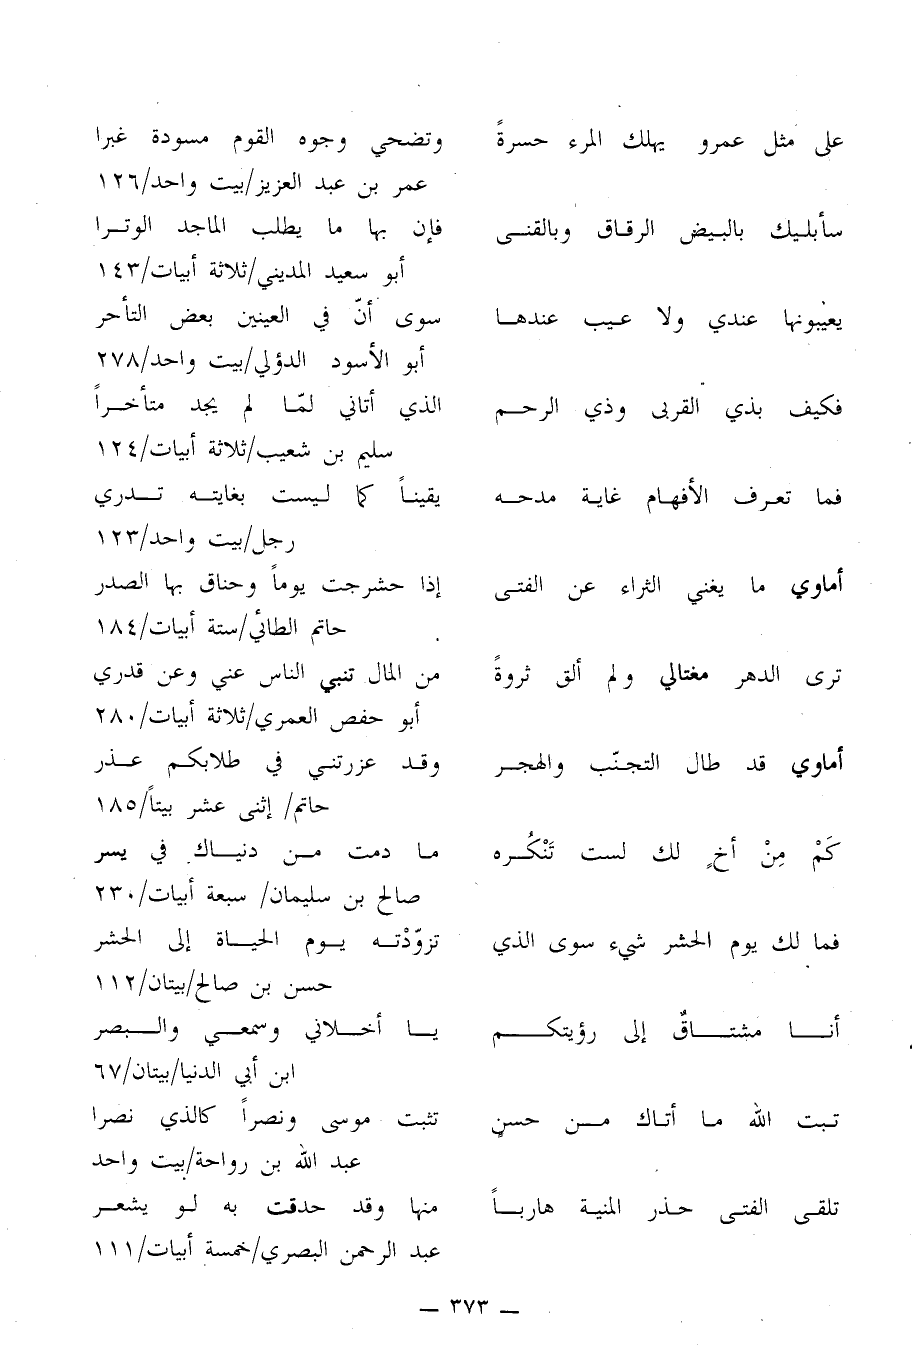 على مثل عمرو يهلك المرء حسرةً وتضحي وجوه القوم مسودة غبرا
عمر بن عبد العزيز/بيت واحد/١٢٦
سأبليك بالبيض الرقاق وبالقنى فإن بها ما يطلب الماجد الوترا
أبو سعيد المديني/ثلاثة أبيات/١٤٣
يعيبونها عندي ولا عيب عندها سوى أنّ في العينين بعض التأخر
أبو الأسود الدؤلي/بيت واحد/٢٧٨
فكيف بذي القربى وذي الرحم الذي أتاني لمّا لم يجد متأخراً
سليم بن شعيب/ثلاثة أبيات/١٢٤
فما تعرف الأفهام غاية مدحه يقيناً كما ليست بغايته تدري
رجل/بيت واحد/١٢٣
أماوي ما يغني الثراء عن الفتى إذا حشرجت يوماً وضاق بها الصدر
حاتم الطائي/ستة أبيات/١٨٤
ترى الدهر مغتالي ولم ألق ثروةً من المال تنبي الناس عني وعن قدري
أبو حفص العمري/ثلاثة أبيات/٢٨٠
أماوي قد طال التجنّب والهجر وقد عزرتني في طلابكم عذر
حاتم/ إثنى عشر بيتاً/١٨٥
كَمْ مِنْ أخٍ لك لست تَنْكُره ما دمت من دنياك في يسر
صالح بن سليمان/ سبعة أبيات/٢٣٠
فما لك يوم الحشر شيء سوى الذي تزوّدْته يوم الحياة إلى الحشر
حسن بن صالح/بيتان/١١٢
أنا مشتاقٌ إلى رؤيتكم يا أخلاني وسمعي والبصر
ابن أبي الدنيا/بيتان/٦٧
تبت الله ما أتاك من حسنٍ تثبت موسى ونصراً كالذي نصرا
عبد الله بن رواحة/بيت واحد
تلقى الفتى حذر المنية هارباً منها وقد حدقت به لو يشعر
عبد الرحمن البصري/خمسة أبيات/١١١
— ٣٧٣ —